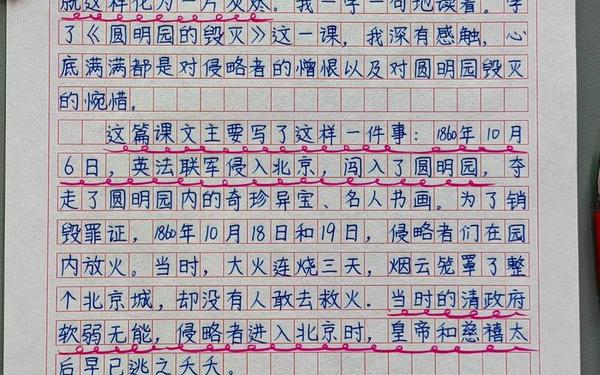 就这样化为一片灰烬。我一字一句地读着。学
了《圆明园的毁灭》这一课，我深有感触，心
底满满都是对侵略者的憎恨以及对圆明园毁灭
的惋惜。
这篇课文主要写了这样一件事：1860年10月
6日，英法联军侵入北京，闯入了圆明园，夺
走了圆明园内的奇珍异宝、名人书画。为了销
毁罪证，1860年10月18日和19日，侵略者们在园
内放火。当时，大火连烧三天，烟云笼罩了整
个北京城，却没有人敢去救火．当时的清政府
软弱无能，侵略者进入北京时，皇帝和慈禧太
后早已逃之夭夭。